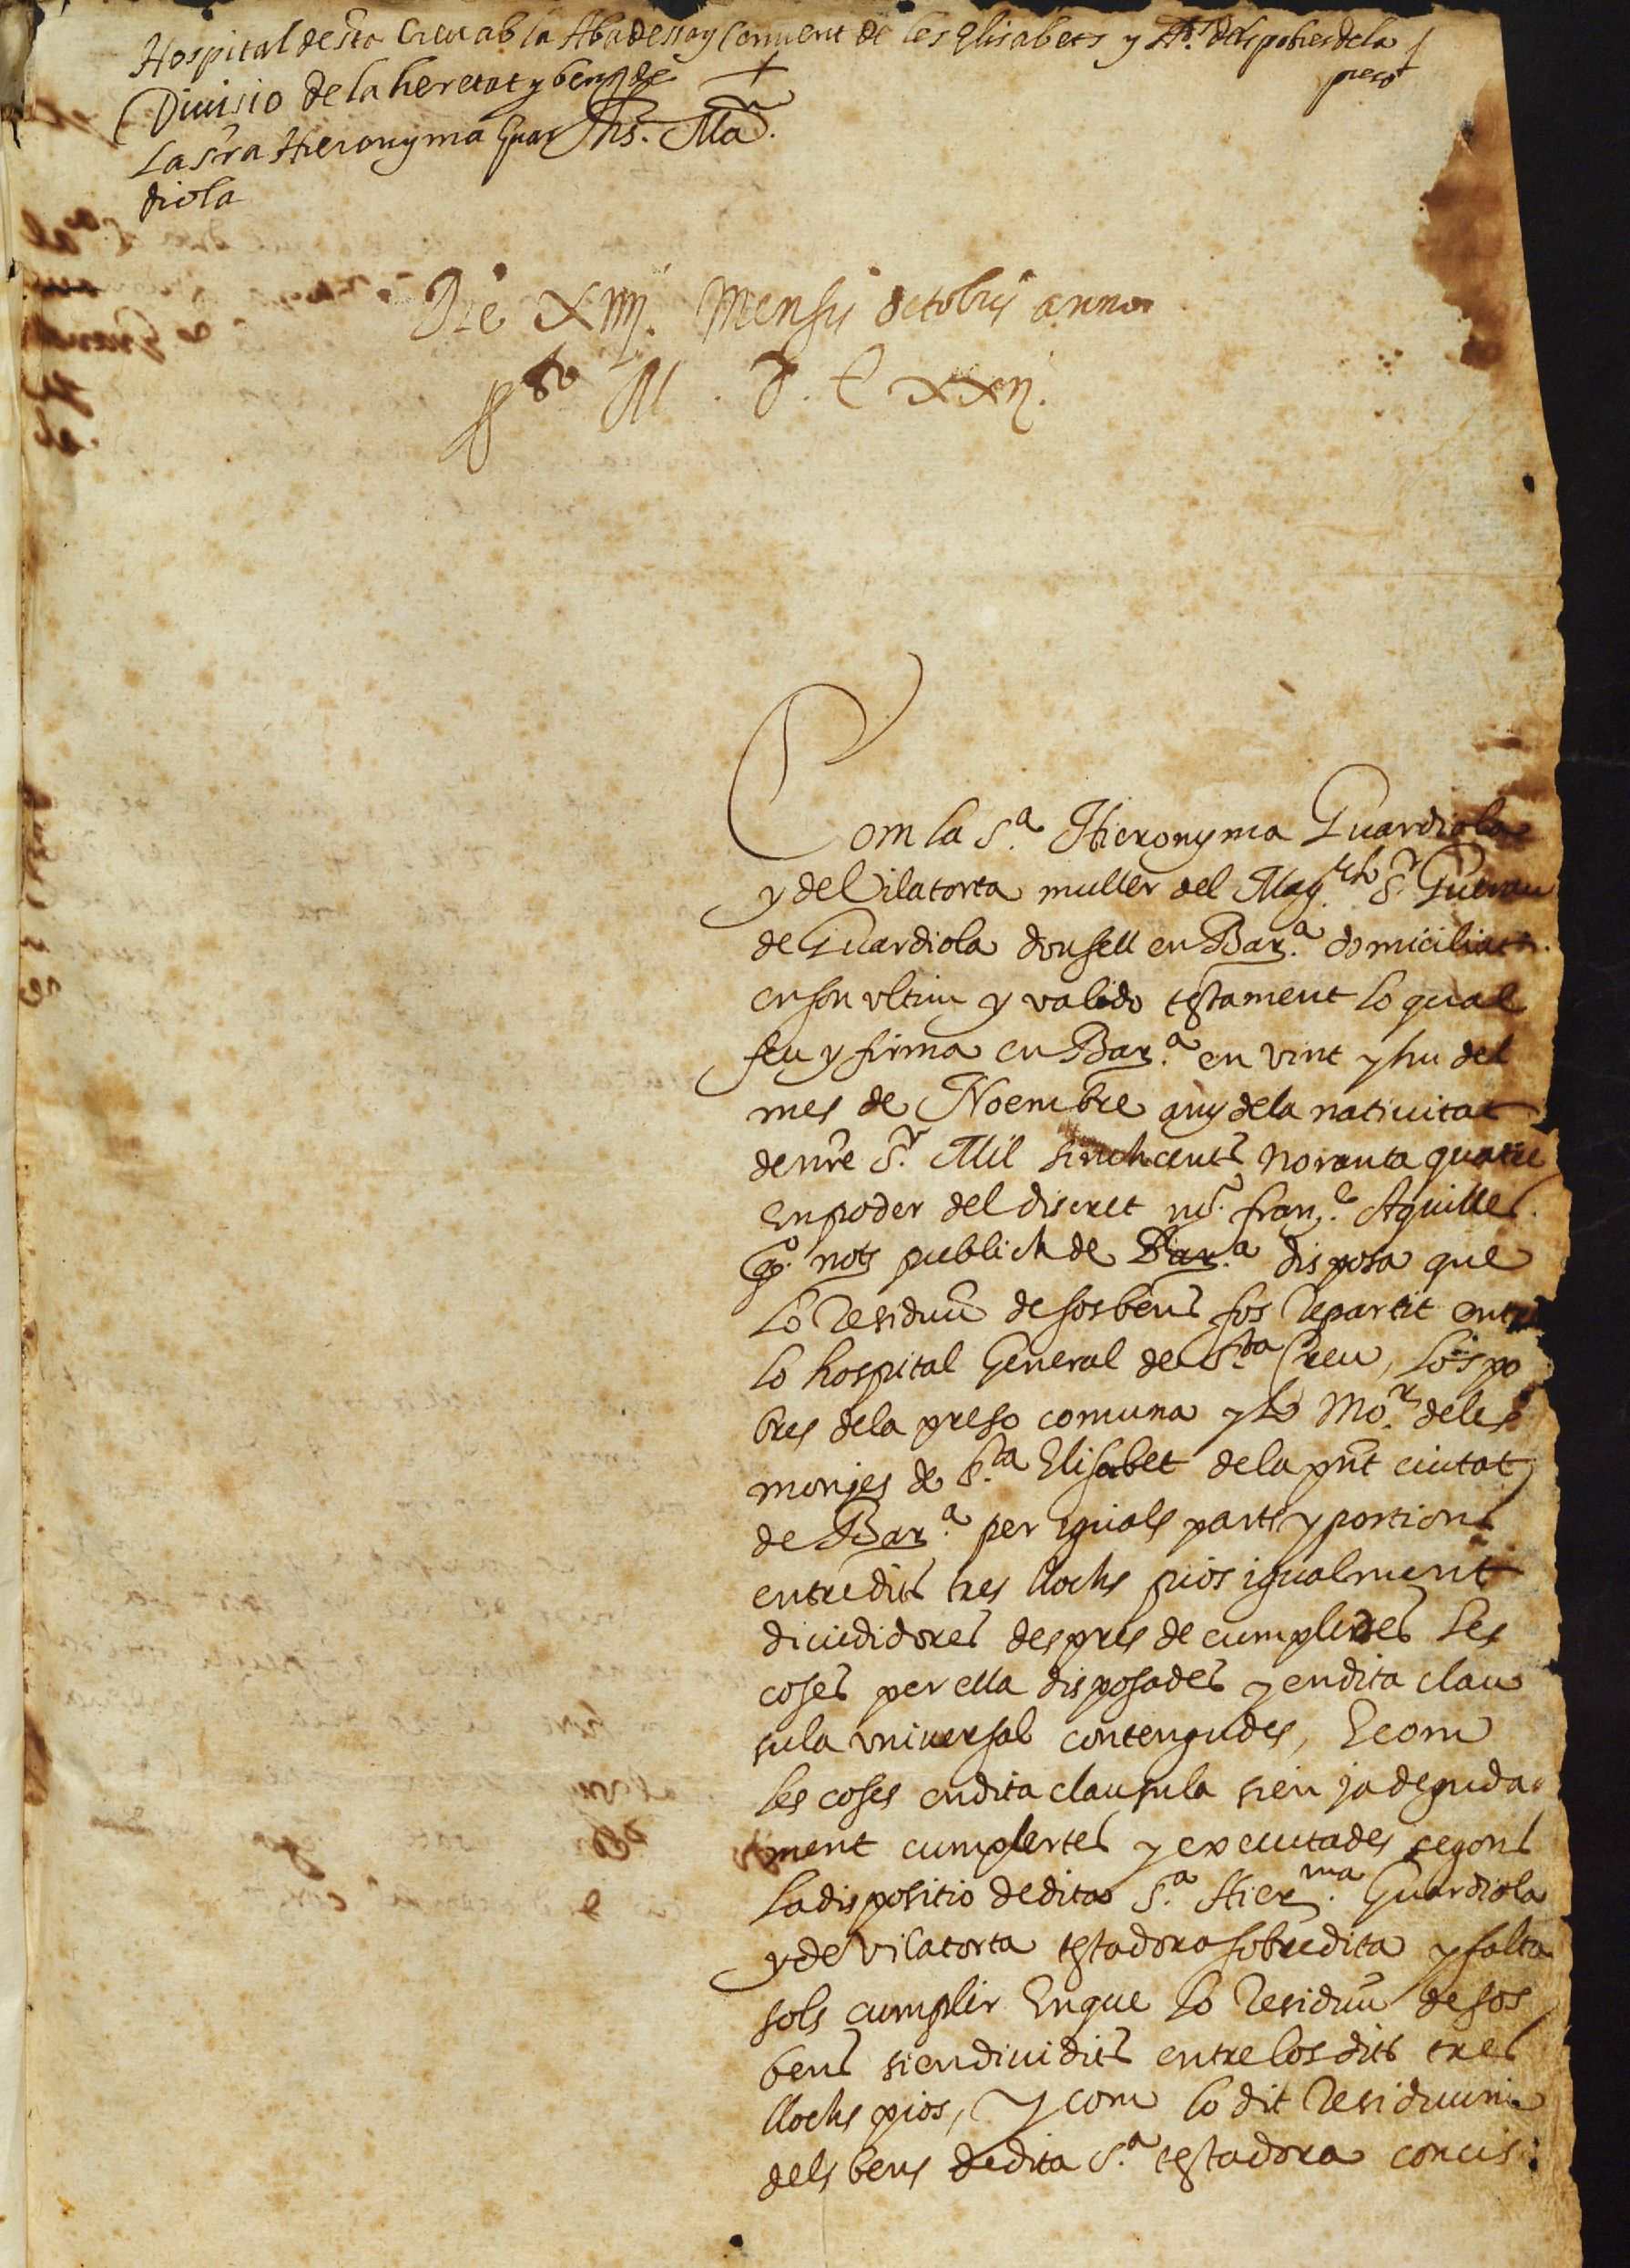 Hospital de sta Creu ab la Abadessa y Convent de les Elisabets y Ars dels pobres de la
preso
Divisio de la heretat y bens de
la sra Hieronyma Guar
diola
Jhs. Mar.
Die XIIII. Mensis octobris anno
M. D. C XXII.
Com la S.a Hieronyma Guardiola
y de Vilatorta muller del Mag.ch S.r Guerau
de Guardiola donsell en Bar.a domiciliat
en son ultim y valido testament lo qual
feu y firma en Bar.a en vint y hu del
mes de Noembre any de la nativitat
de nre S.r Mil sinchcents noranta quatre
en poder del discret mo. fran.c Aquilles
qo. nots publich de Bar.a disposa que
lo residuu de sos bens fos repartit entre
lo hospital General de S.ta Creu, los po
bres de la preso comuna y lo Mo.r de les
monjes de S.ta Elisabet de la pnt ciutat
de Bar.a per iguals parts y portions
entre dits tres llochs pios igualment
divididores despres de cumplertes les
coses per ella disposades y en dita clau
sula universal contengudes, E com
les coses en dita clausula sien ja deguda
ment cumplertes y executades segons
la dispositio de dita S.a Hier.ma Guardiola
y de Vilatorta testadora sobredita y falta
sols cumplir en que lo residuu de sos
bens sien dividits entre los dits tres
llochs pios, Y com lo dit residuum
dels bens de dita S.a testadora concis